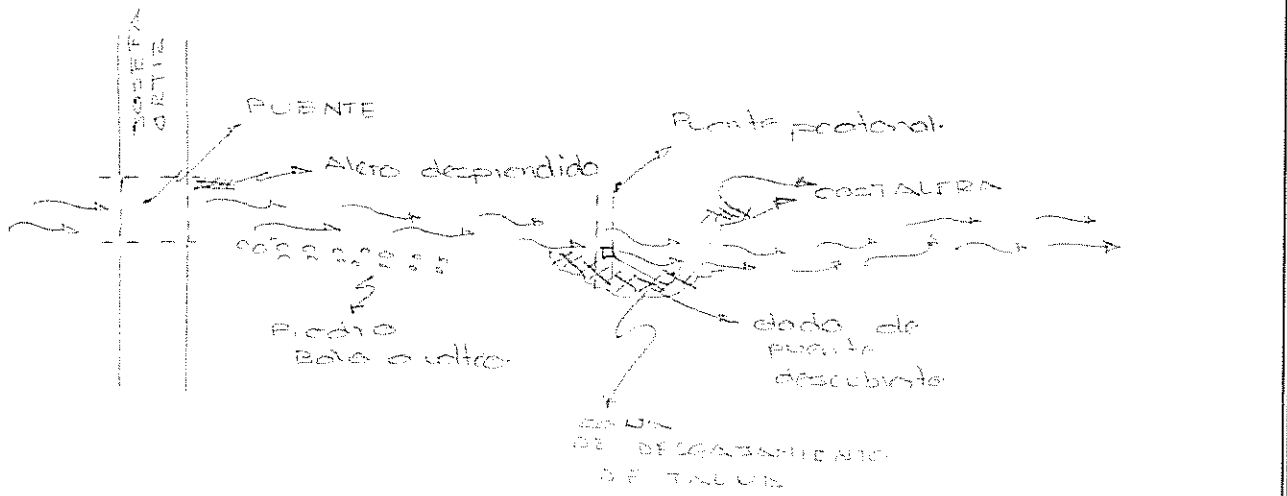 JOSEFA
ORTIZ
PUENTE
Alero desprendido
Puente peatonal.
COSTALERA
Piedra
Bola o volteo.
dado de
puente
descubierto
ZONA
DE DESGAJAMIENTO
DE TALUD